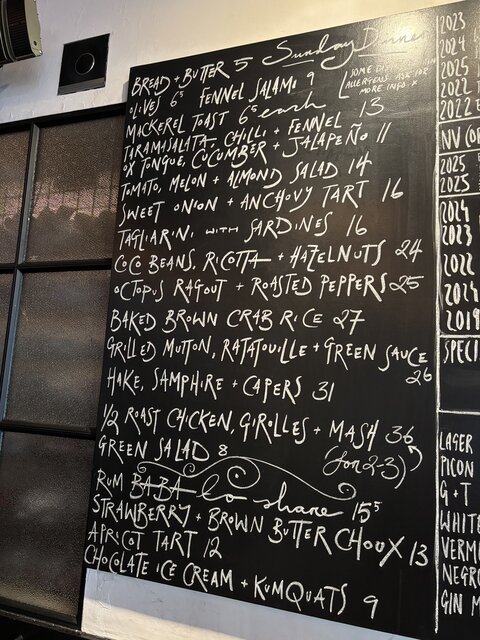 Sunday Dinner
BREAD + BUTTER 5
SOME DISHES
ALLERGENS. ASK FOR
MORE INFO X
OLIVES 6⁵ FENNEL SALAMI 9
MACKEREL TOAST 6⁵ each
TARAMASALATA, CHILLI + FENNEL 13
OX TONGUE, CUCUMBER + JALAPEÑO 11
TOMATO, MELON + ALMOND SALAD 14
SWEET ONION + ANCHOVY TART 16
TAGLIARINI WITH SARDINES 16
COCO BEANS, RICOTTA + HAZELNUTS 24
OCTOPUS RAGOUT + ROASTED PEPPERS 25
BAKED BROWN CRAB RICE 27
GRILLED MUTTON, RATATOUILLE + GREEN SAUCE
26
HAKE, SAMPHIRE + CAPERS 31
1/2 ROAST CHICKEN, GIROLLES + MASH 36
(for 2-3)
GREEN SALAD 8
RUM BABA to share 15⁵
STRAWBERRY + BROWN BUTTER CHOUX 13
APRICOT TART 12
CHOCOLATE ICE CREAM + KUMQUATS 9
2023
2024
2025
2022
2022
NV
2025
2025
2024
2023
2022
2024
2019
SPECI
LAGER
PICON
G + T
WHITE
VERM
NEGR
GIN M